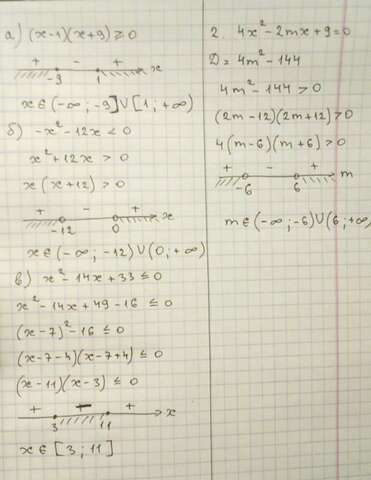 а) (x-1)(x+9) ≥ 0
+ - +
-9 1 x
x ∈ (-∞; -9] ∪ [1; +∞)
б) -x² - 12x < 0
x² + 12x > 0
x(x+12) > 0
+ - +
-12 0 x
x ∈ (-∞; -12) ∪ (0; +∞)
в) x² - 14x + 33 ≤ 0
x² - 14x + 49 - 16 ≤ 0
(x-7)² - 16 ≤ 0
(x-7-4)(x-7+4) ≤ 0
(x-11)(x-3) ≤ 0
+ - +
3 11 x
x ∈ [3; 11]
2. 4x² - 2mx + 9 = 0
D = 4m² - 144
4m² - 144 > 0
(2m-12)(2m+12) > 0
4(m-6)(m+6) > 0
+ - +
-6 6 m
m ∈ (-∞; -6) ∪ (6; +∞